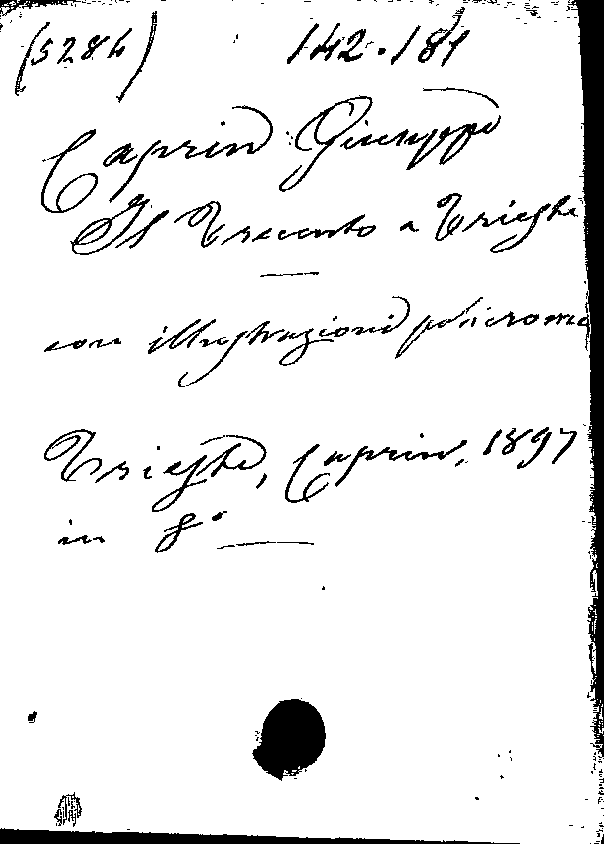 (5284) 142.181
Caprin Giuseppe
Il Trecento a Trieste
con illustrazioni policrome
Trieste, Caprin, 1897
in 8°